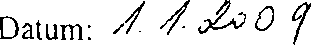 Datum: 1.1.2009